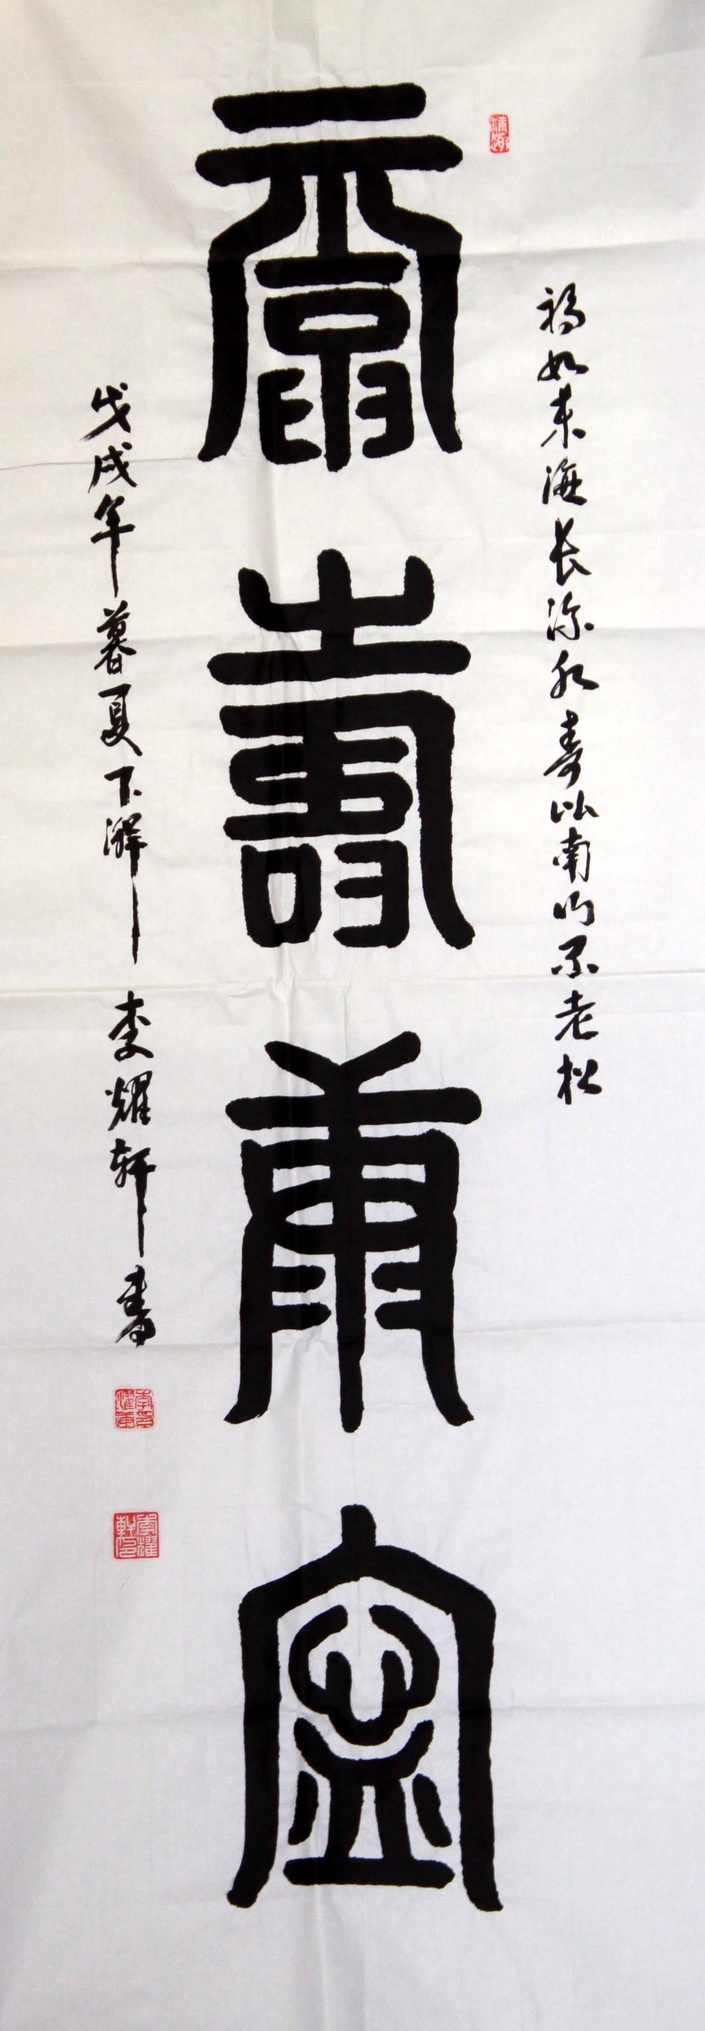 福如东海长流水寿比南山不老松
福寿康宁
戊戌年暮夏下澣李耀轩书